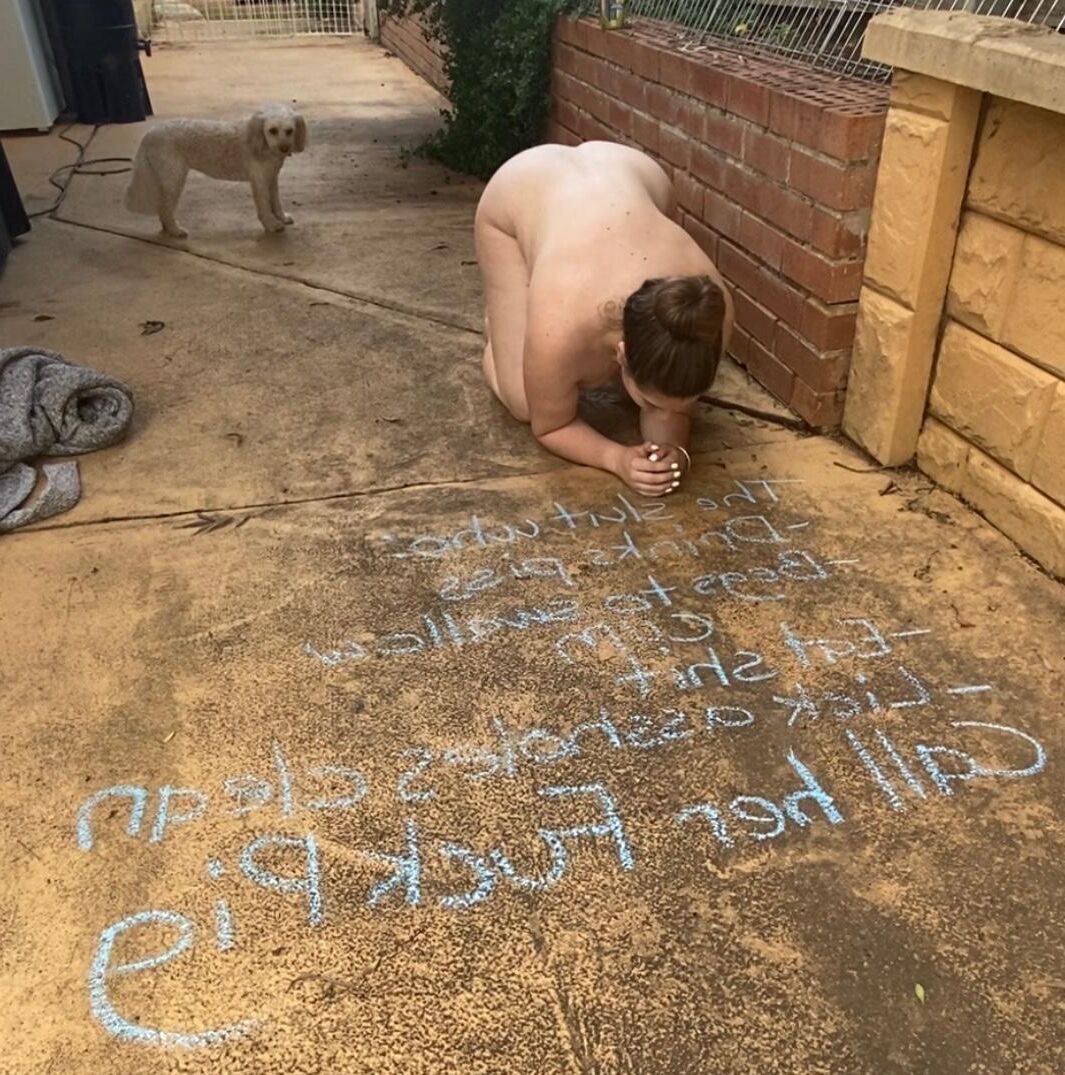 The slut who:
- Drinks piss
- Begs to swallow
Cum
- Eat shit
- Lick asshole's clean
Call her Fuck pig